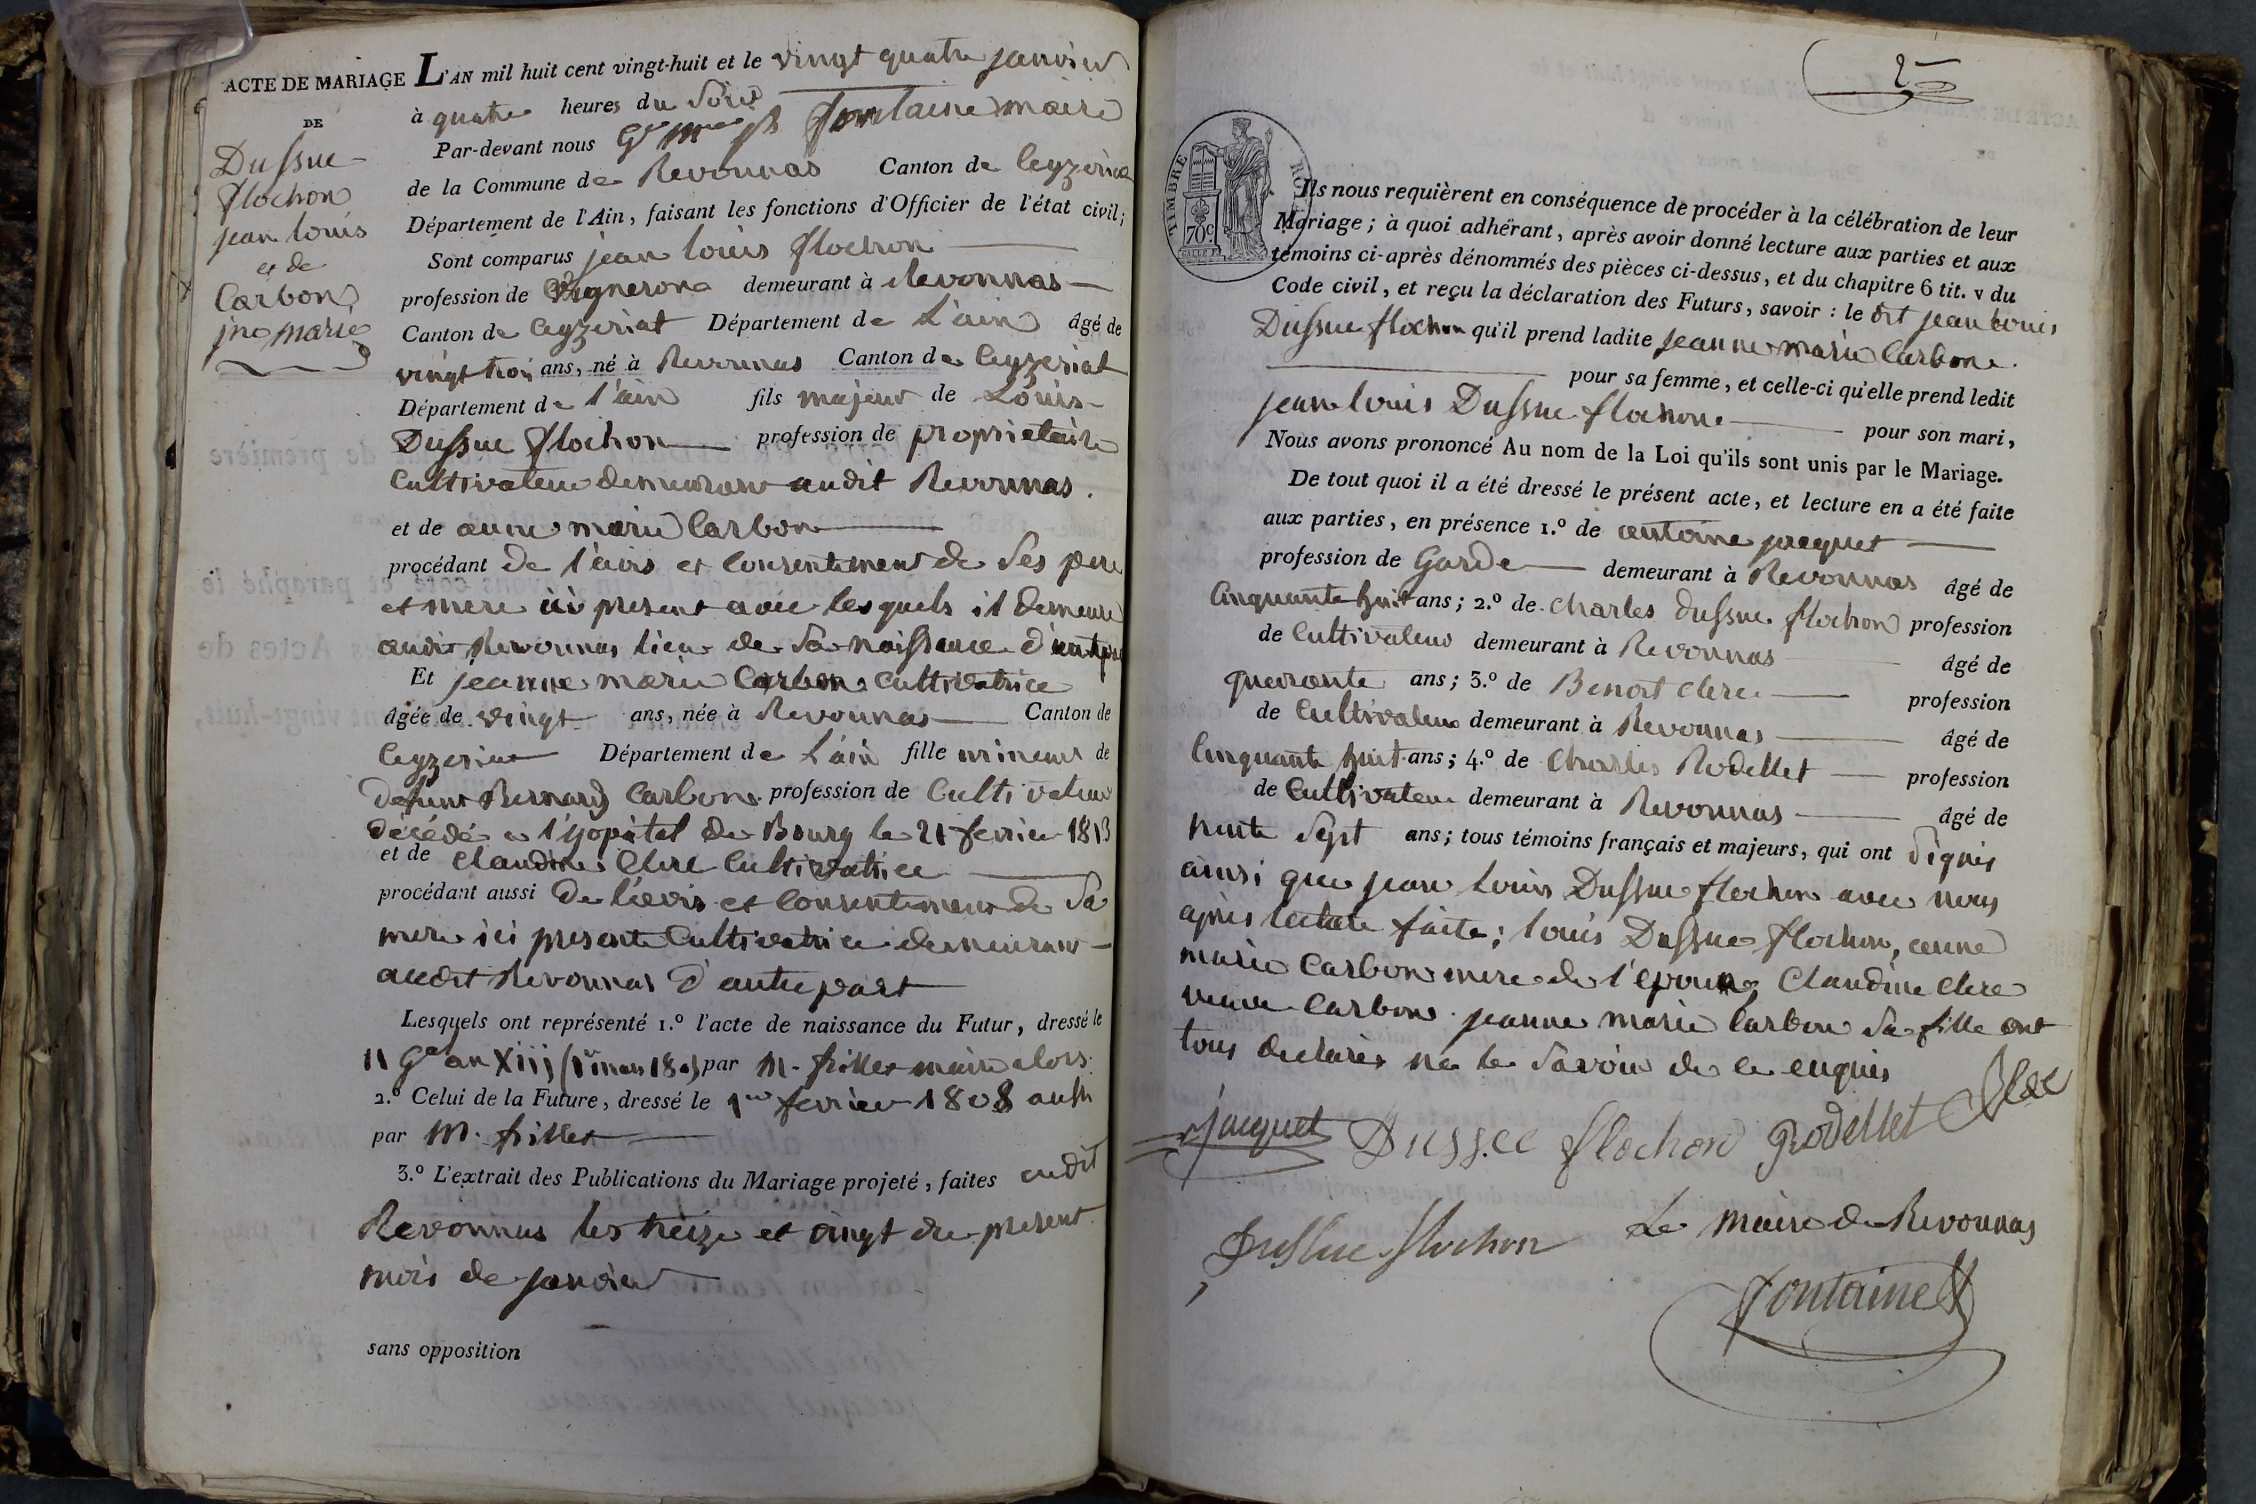 ACTE DE MARIAGE
DE
Dussue
flochon
jean louis
et de
Carbon
jne marie
L'AN mil huit cent vingt-huit et le vingt quatre janvier
à quatre heures du soir
Par-devant nous Fontaine maire
de la Commune de Revonnas Canton de Ceyzeriat
Département de l'Ain, faisant les fonctions d'Officier de l'état civil;
Sont comparus jean louis flochon
profession de Vigneron demeurant à Revonnas
Canton de Ceyzeriat Département de L'ain âgé de
vingt trois ans, né à Revonnas Canton de Ceyzeriat
Département de l'ain fils majeur de Louis
Dussue flochon profession de propriétaire
Cultivateur demeurant audit Revonnas.
et de anne marie Carbon
procédant de l'avis et consentement de ses pere
et mere ici present avec lesquels il demeure
audit Revonnas lieu de sa naissance d'une part
Et jeanne marie Carbon Cultivatrice
âgée de vingt ans, née à Revonnas Canton de
Ceyzeriat Département de L'ain fille mineure de
defunt Bernard Carbon profession de Cultivateur
décédé a l'hopital de Bourg le 21 fevrier 1813
et de Claudine Clerc Cultivatrice
procédant aussi De l'avis et consentement de sa
mere ici presente Cultivatrice demeurant
audit Revonnas d'autre part
Lesquels ont représenté 1.º l'acte de naissance du Futur, dressé le
11 Gal an Xiij par M. frillet maire alors
2.º Celui de la Future, dressé le 1er fevrier 1808 aussi
par M. frillet
3.º L'extrait des Publications du Mariage projeté, faites audit
Revonnas les treize et vingt du present
mois de janvier
sans opposition
2
TIMBRE ROYAL
70 c
Ils nous requièrent en conséquence de procéder à la célébration de leur
Mariage; à quoi adhérant, après avoir donné lecture aux parties et aux
témoins ci-après dénommés des pièces ci-dessus, et du chapitre 6 tit. v du
Code civil, et reçu la déclaration des Futurs, savoir : le dit jean louis
Dussue flochon qu'il prend ladite jeanne marie Carbon
pour sa femme, et celle-ci qu'elle prend ledit
jean louis Dussue flochon pour son mari,
Nous avons prononcé Au nom de la Loi qu'ils sont unis par le Mariage.
De tout quoi il a été dressé le présent acte, et lecture en a été faite
aux parties, en présence 1.º de antoine jacquet
profession de Garde demeurant à Revonnas âgé de
Cinquante huit ans; 2.º de Charles dussue flochon profession
de Cultivateur demeurant à Revonnas âgé de
quarante ans; 3.º de Benoit Clerc profession
de Cultivateur demeurant à Revonnas âgé de
Cinquante huit ans; 4.º de Charles Rodellet profession
de Cultivateur demeurant à Revonnas âgé de
trente sept ans; tous témoins français et majeurs, qui ont signés
ainsi que jean louis Dussue flochon avec nous
après lecture faite; louis Dussue flochon, anne
marie Carbon mere de l'epoux, Claudine Clerc
veuve Carbon jeanne marie Carbon sa fille ont
tous declarés ne le savoir de ce enquis
Jacquet Dussue flochon Rodellet Clerc
Dussue flochon Le maire de Revonnas
Fontaine